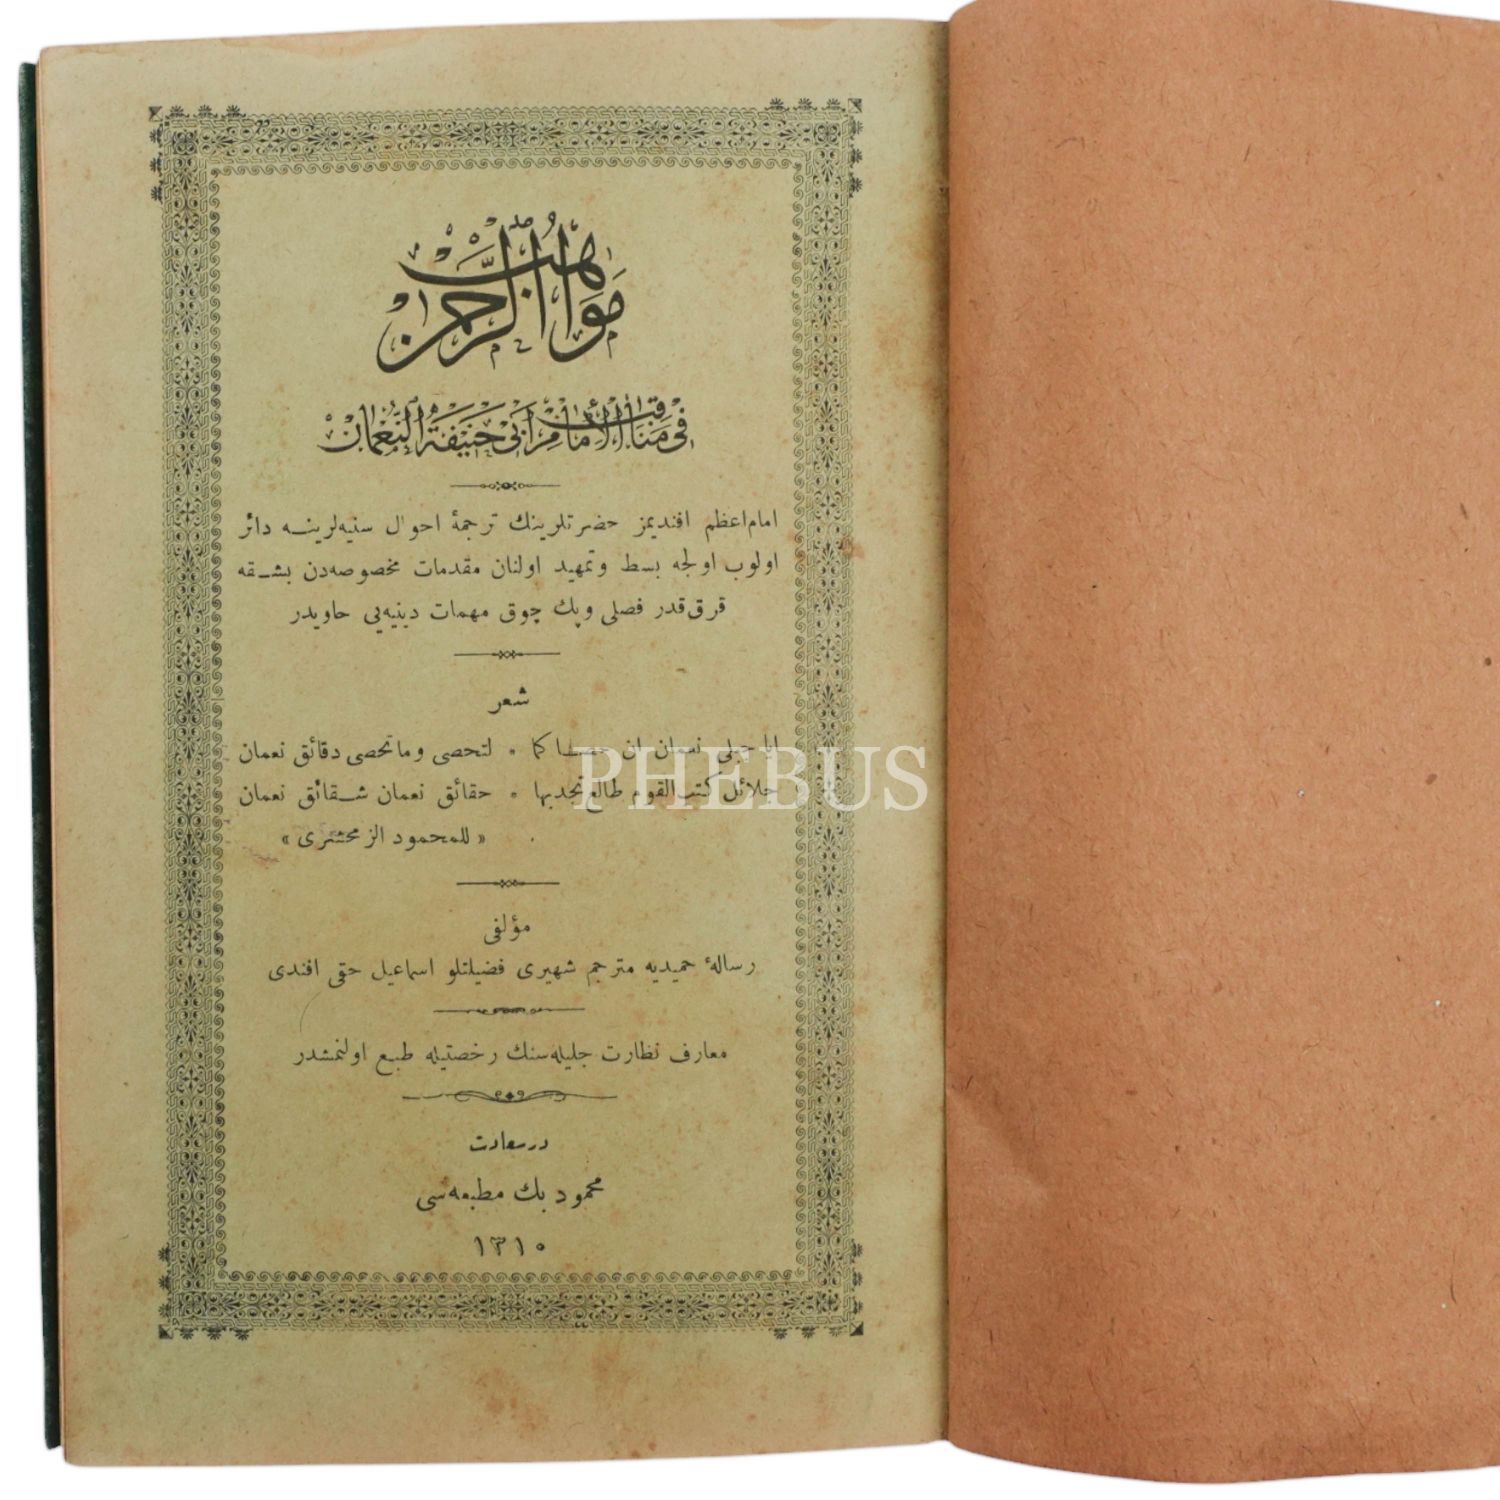 مَوَاهِبُ الرَّحمٰن
فِي مَنَاقِبِ الْإِمَامِ أَبِي حَنِيفَةَ النُّعْمَانِ
امام اعظم افنديمز حضرتلرينك ترجمهٔ احوال سنيه‌لرينه دائر
اولوب اولجه بسط وتمهيد اولنان مقدمات مخصوصه‌دن بشقه
قرق قدر فصلی وپك چوق مهمات دينيه‌یی حاويدر
شعر
ايا جبلى نعمان ان حصاكما * لتحصى وماتحصى دقائق نعمان
جلائل كتب القوم طالع تجدبها * حقائق نعمان شقائق نعمان
« للمحمود الزمخشرى »
مؤلفی
رسالهٔ حميديه مترجم شهيری فضيلتلو اسماعيل حقی افندی
معارف نظارت جليله‌سنك رخصتيله طبع اولنمشدر
درسعادت
محمود بك مطبعه‌سی
١٣١٠
PHEBUS